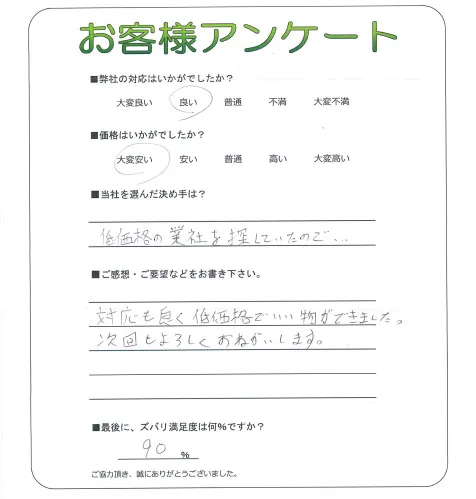 お客様アンケート
■弊社の対応はいかがでしたか？
大変良い 良い 普通 不満 大変不満
■価格はいかがでしたか？
大変安い 安い 普通 高い 大変高い
■当社を選んだ決め手は？
低価格の業社を探していたので…
■ご感想・ご要望などをお書き下さい。
対応も良く低価格でいい物ができました。
次回もよろしくおねがいします。
■最後に、ズバリ満足度は何%ですか？
90 %
ご協力頂き、誠にありがとうございました。